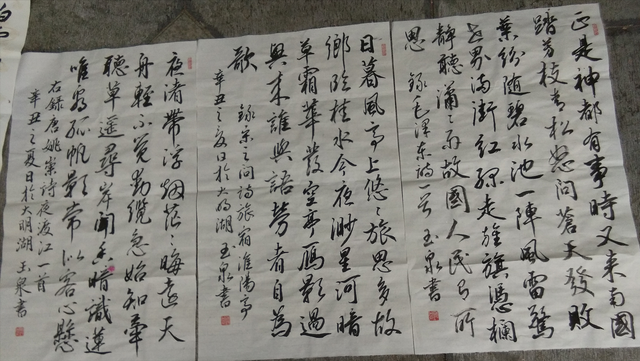 正是神都有事時又来南國
踏芳枝青松怒向蒼天發敗
葉紛随碧水池一陣風雷驚
世界满街红绿走旌旗憑欄
静聽瀟々雨故國人民有所
思 錄毛澤東詩一首 玉泉書
日暮風亭上悠々旅思多故
鄉臨桂水今夜渺星河暗
草霜華發空亭雁影過
興来誰與語勞者自為
歌 錄宋之问詩旅宿淮陽亭
辛丑之夏日於大明湖 玉泉書
夜渚帶浮烟茫々晦遠天
舟輕不覺動纜急始知牽
聽草遥尋岸聞香暗識蓮
唯看孤帆影常似客心懸
右錄唐姚崇詩夜渡江一首
辛丑之夏日於大明湖 玉泉書